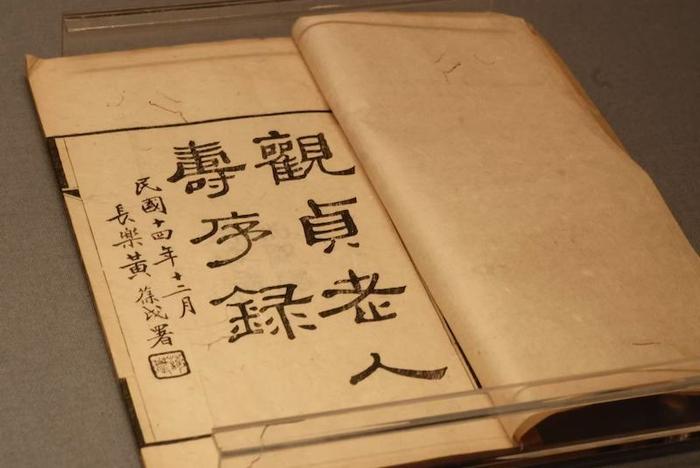 觀貞老人
壽序錄
民國十四年十二月
長樂黃葆戉署